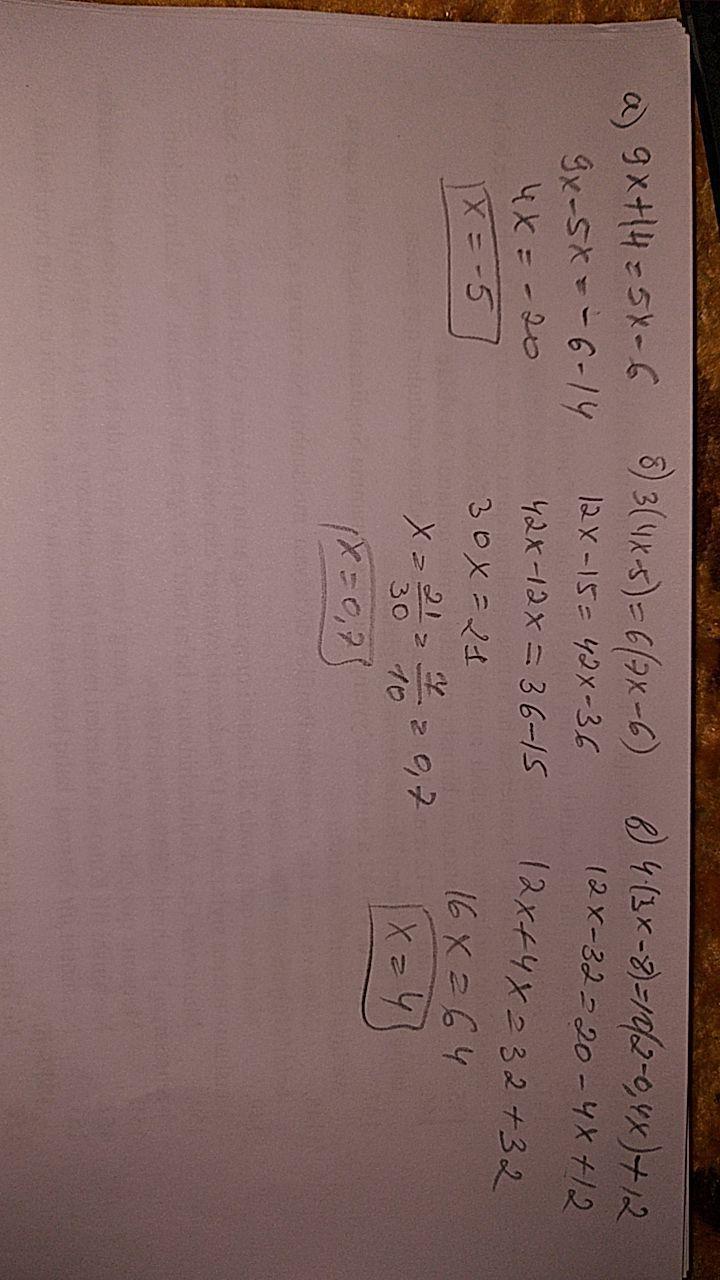 а) 9x+14=5x-6
9x-5x=-6-14
4x=-20
x=-5
б) 3(4x-5)=6(7x-6)
12x-15=42x-36
42x-12x=36-15
30x=21
x=21/30=7/10=0,7
x=0,7
в) 4·(3x-8)=10(2-0,4x)+12
12x-32=20-4x+12
12x+4x=32+32
16x=64
x=4